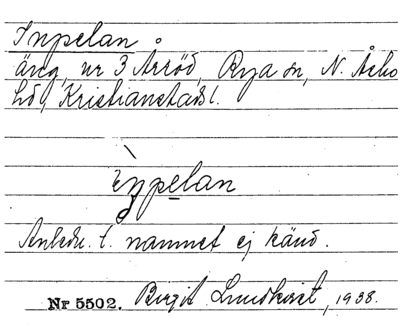 Inpelan
äng, nr 3 Arröd, Rya sn, N. Åsbo
hd, Kristianstads l.
pelan
Anledn. t. namnet ej känd.
Nr 5502. Birgit Lundkvist, 1938.